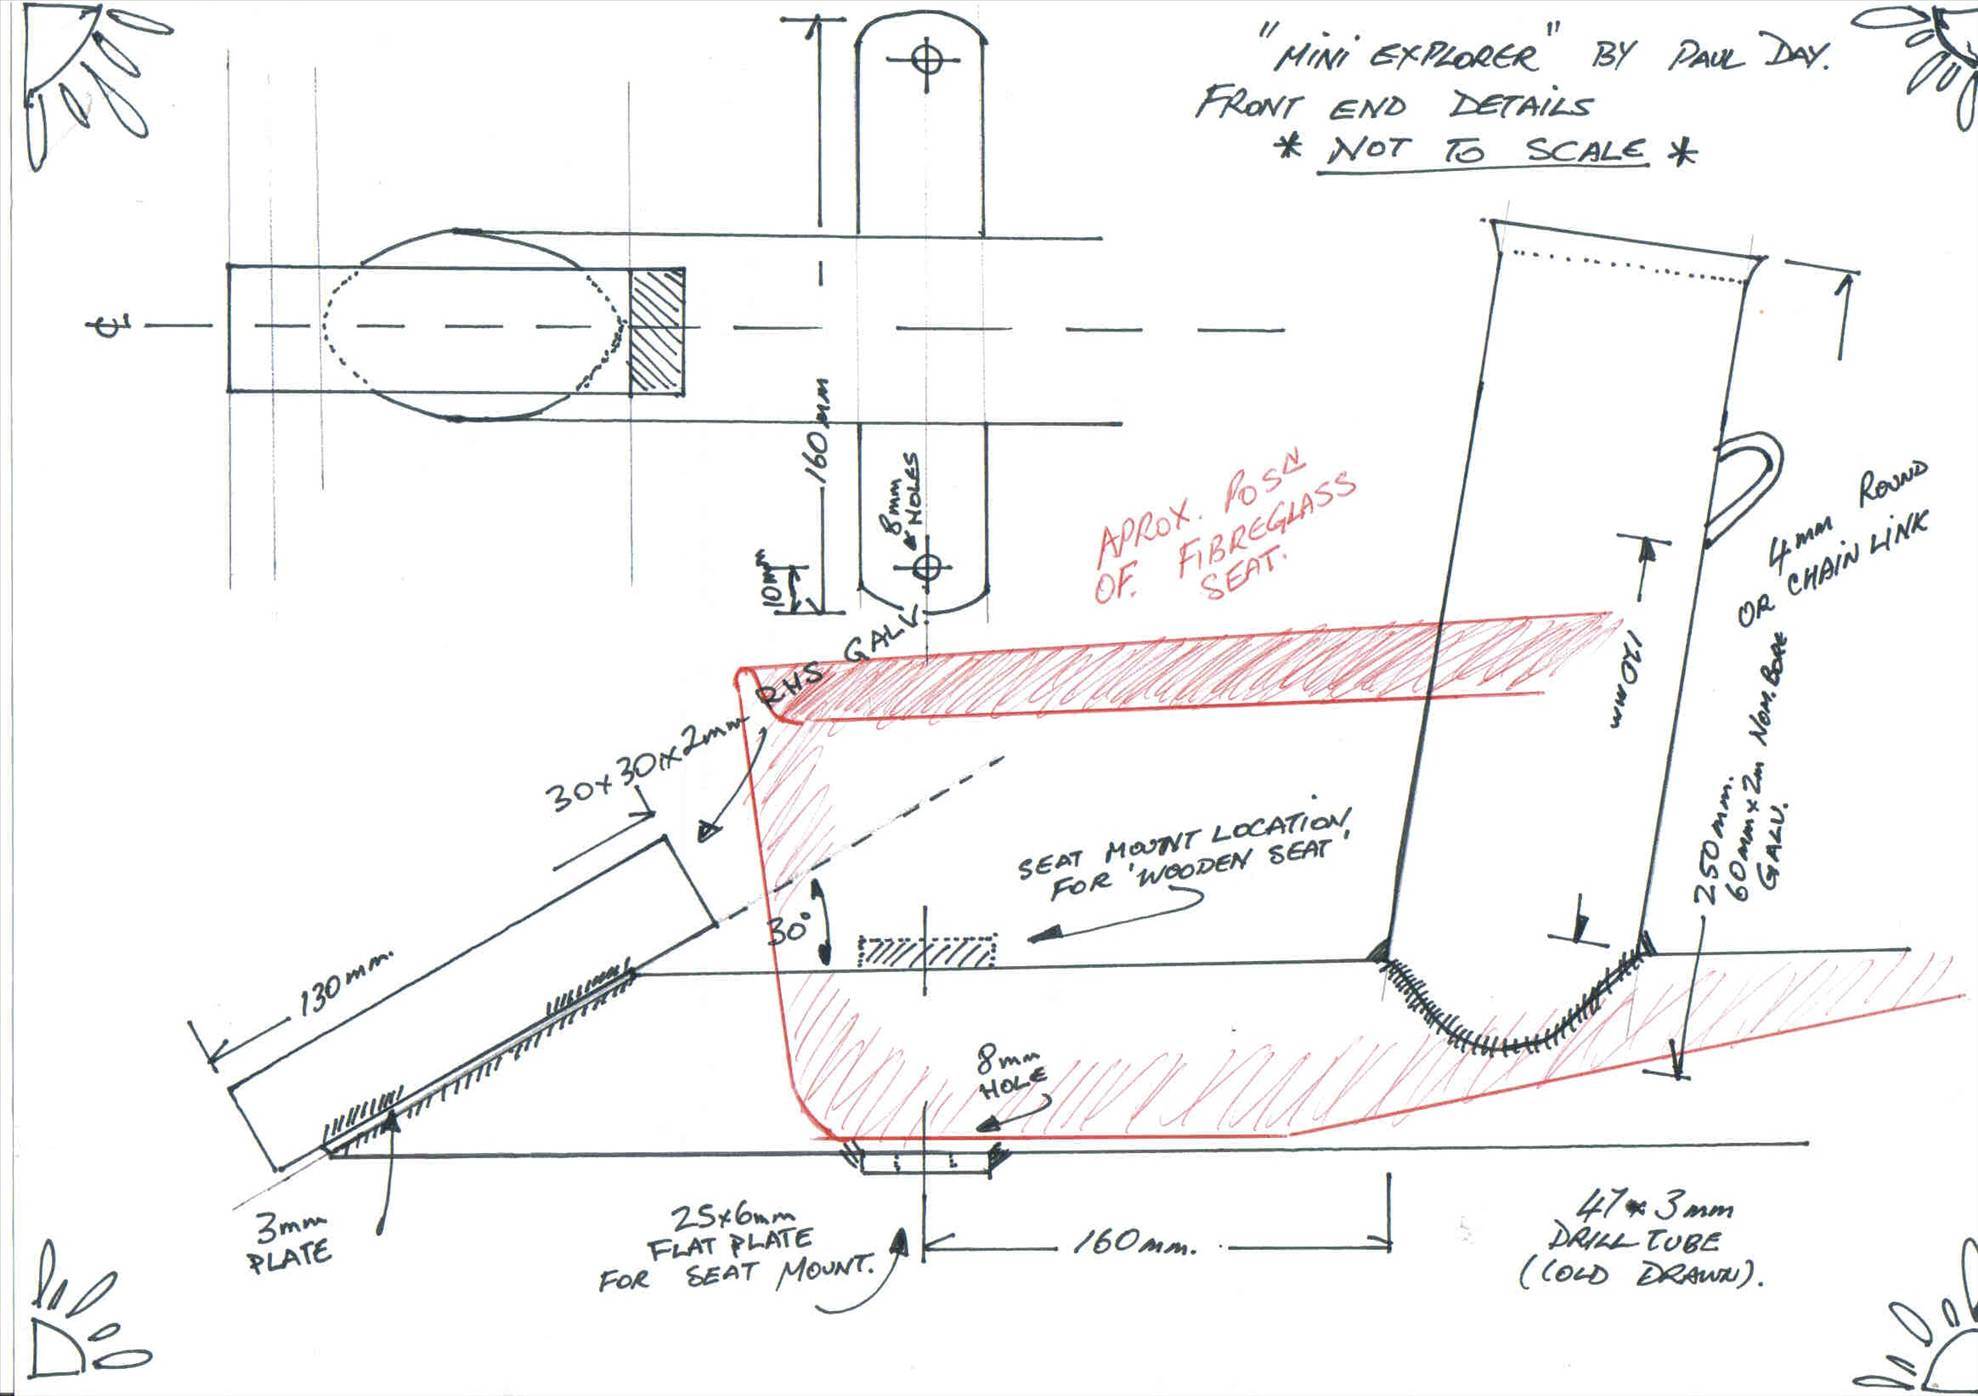 "MINI EXPLORER" BY PAUL DAY.
FRONT END DETAILS
* NOT TO SCALE *
℄
160mm
8mm
HOLES
10mm
APROX. POSN
OF. FIBREGLASS
SEAT.
4mm ROUND
OR CHAIN LINK
30x30x2mm RHS GALV.
120mm
250mm.
60mmx2m NOM. BORE
GALV.
SEAT MOUNT LOCATION,
FOR 'WOODEN SEAT'
30°
130mm.
8mm
HOLE
3mm
PLATE
25x6mm
FLAT PLATE
FOR SEAT MOUNT.
160mm.
47x3mm
DRILL TUBE
(COLD DRAWN).